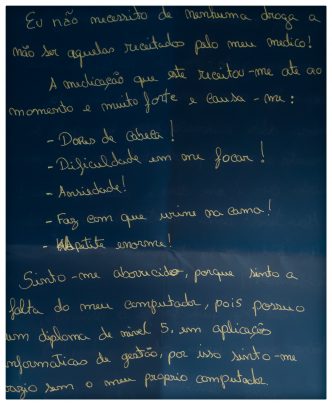 Eu não necessito de nenhuma droga a
não ser aquelas receitadas pelo meu medico!
A medicação que este receitou-me ate ao
momento e muito forte e causa-me:
- Dores de cabeça!
- Dificuldade em me focar!
- Ansiedade!
- Faz com que urine na cama!
- Apetite enorme!
Sinto-me aborrecido, porque sinto a
falta do meu computador, pois possuo
um diploma de nivel 5, em aplicações
informaticas de gestão, por isso sinto-me
vazio sem o meu proprio computador.